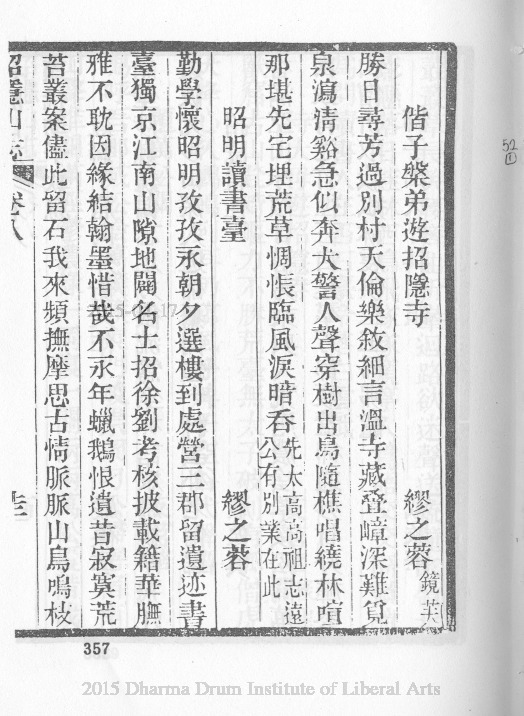 偕子槃弟遊招隱寺　繆之蓉鏡芙
勝日尋芳過別村天倫樂敘細言溫寺藏疊嶂深難覓
泉瀉清谿急似奔犬警人聲穿樹出鳥隨樵唱繞林喧
那堪先宅埋荒草惆悵臨風淚暗吞先太高高祖志遠公有別業在此
昭明讀書臺　繆之蓉
勤學懷昭明孜孜永朝夕選樓到處營三郡留遺迹書
臺獨京江南山隙地闢名士招徐劉考核披載籍華膴
雅不耽因緣結翰墨惜哉不永年蠟鵝恨遺昔寂寞荒
苔叢案儘此留石我來頻撫摩思古情脈脈山鳥鳴枝
招隱山志　卷八
357
52
①
2015 Dharma Drum Institute of Liberal Arts